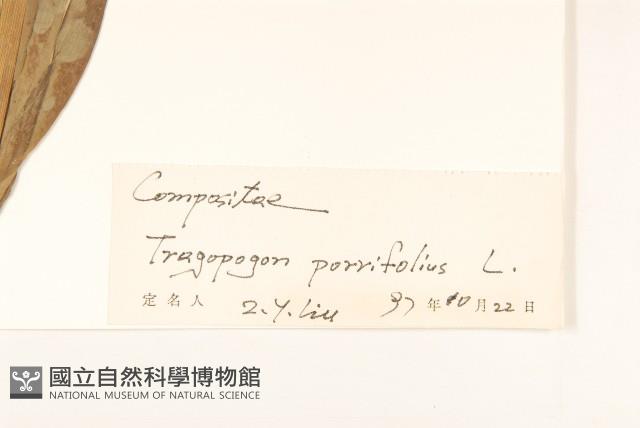 Compositae
Tragopogon porrifolius L.
定名人 Z.Y.Liu 97年10月22日
國立自然科學博物館
NATIONAL MUSEUM OF NATURAL SCIENCE